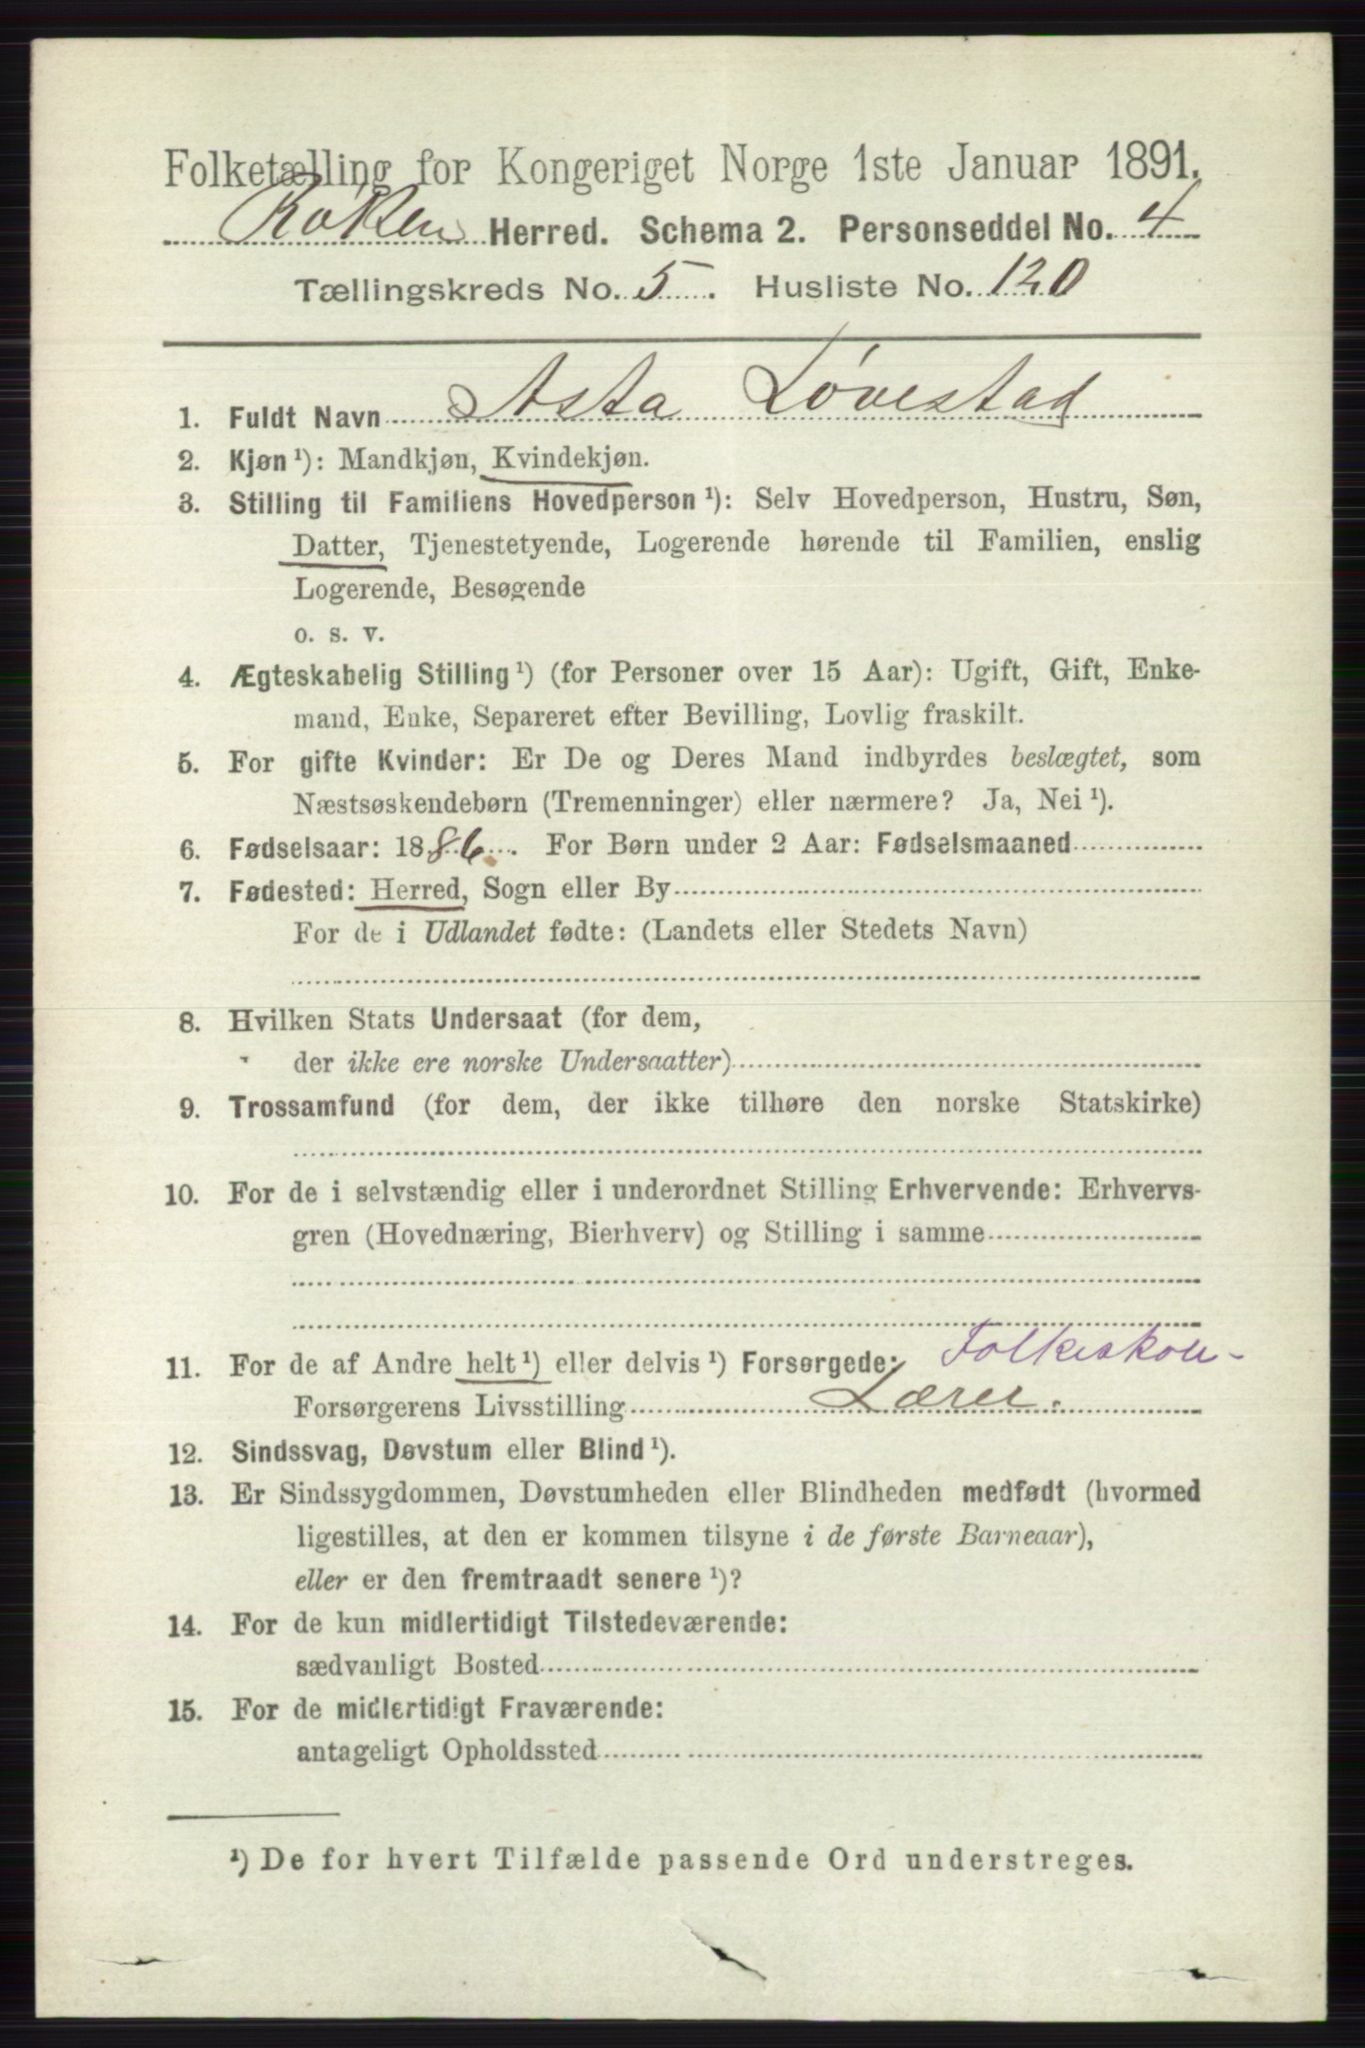 Folketælling for Kongeriget Norge 1ste Januar 1891.
Røken Herred. Schema 2. Personseddel No. 4
Tællingskreds No. 5. Husliste No. 120
1. Fuldt Navn Asta Løvestad
2. Kjøn¹): Mandkjøn, Kvindekjøn.
3. Stilling til Familiens Hovedperson¹): Selv Hovedperson, Hustru, Søn,
Datter, Tjenestetyende, Logerende hørende til Familien, enslig
Logerende, Besøgende
o. s. v.
4. Ægteskabelig Stilling¹) (for Personer over 15 Aar): Ugift, Gift, Enke-
mand, Enke, Separeret efter Bevilling, Lovlig fraskilt.
5. For gifte Kvinder: Er De og Deres Mand indbyrdes beslægtet, som
Næstsøskendebørn (Tremenninger) eller nærmere? Ja, Nei¹).
6. Fødselsaar: 1886. For Børn under 2 Aar: Fødselsmaaned
7. Fødested: Herred, Sogn eller By
For de i Udlandet fødte: (Landets eller Stedets Navn)
8. Hvilken Stats Undersaat (for dem,
der ikke ere norske Undersaatter)
9. Trossamfund (for dem, der ikke tilhøre den norske Statskirke)
10. For de i selvstændig eller i underordnet Stilling Erhvervende: Erhvervs-
gren (Hovednæring, Bierhverv) og Stilling i samme
11. For de af Andre helt¹) eller delvis¹) Forsørgede: Folkeskole-
Forsørgerens Livsstilling Lærer.
12. Sindssvag, Døvstum eller Blind¹).
13. Er Sindssygdommen, Døvstumheden eller Blindheden medfødt (hvormed
ligestilles, at den er kommen tilsyne i de første Barneaar),
eller er den fremtraadt senere¹)?
14. For de kun midlertidigt Tilstedeværende:
sædvanligt Bosted
15. For de midlertidigt Fraværende:
antageligt Opholdssted
¹) De for hvert Tilfælde passende Ord understreges.